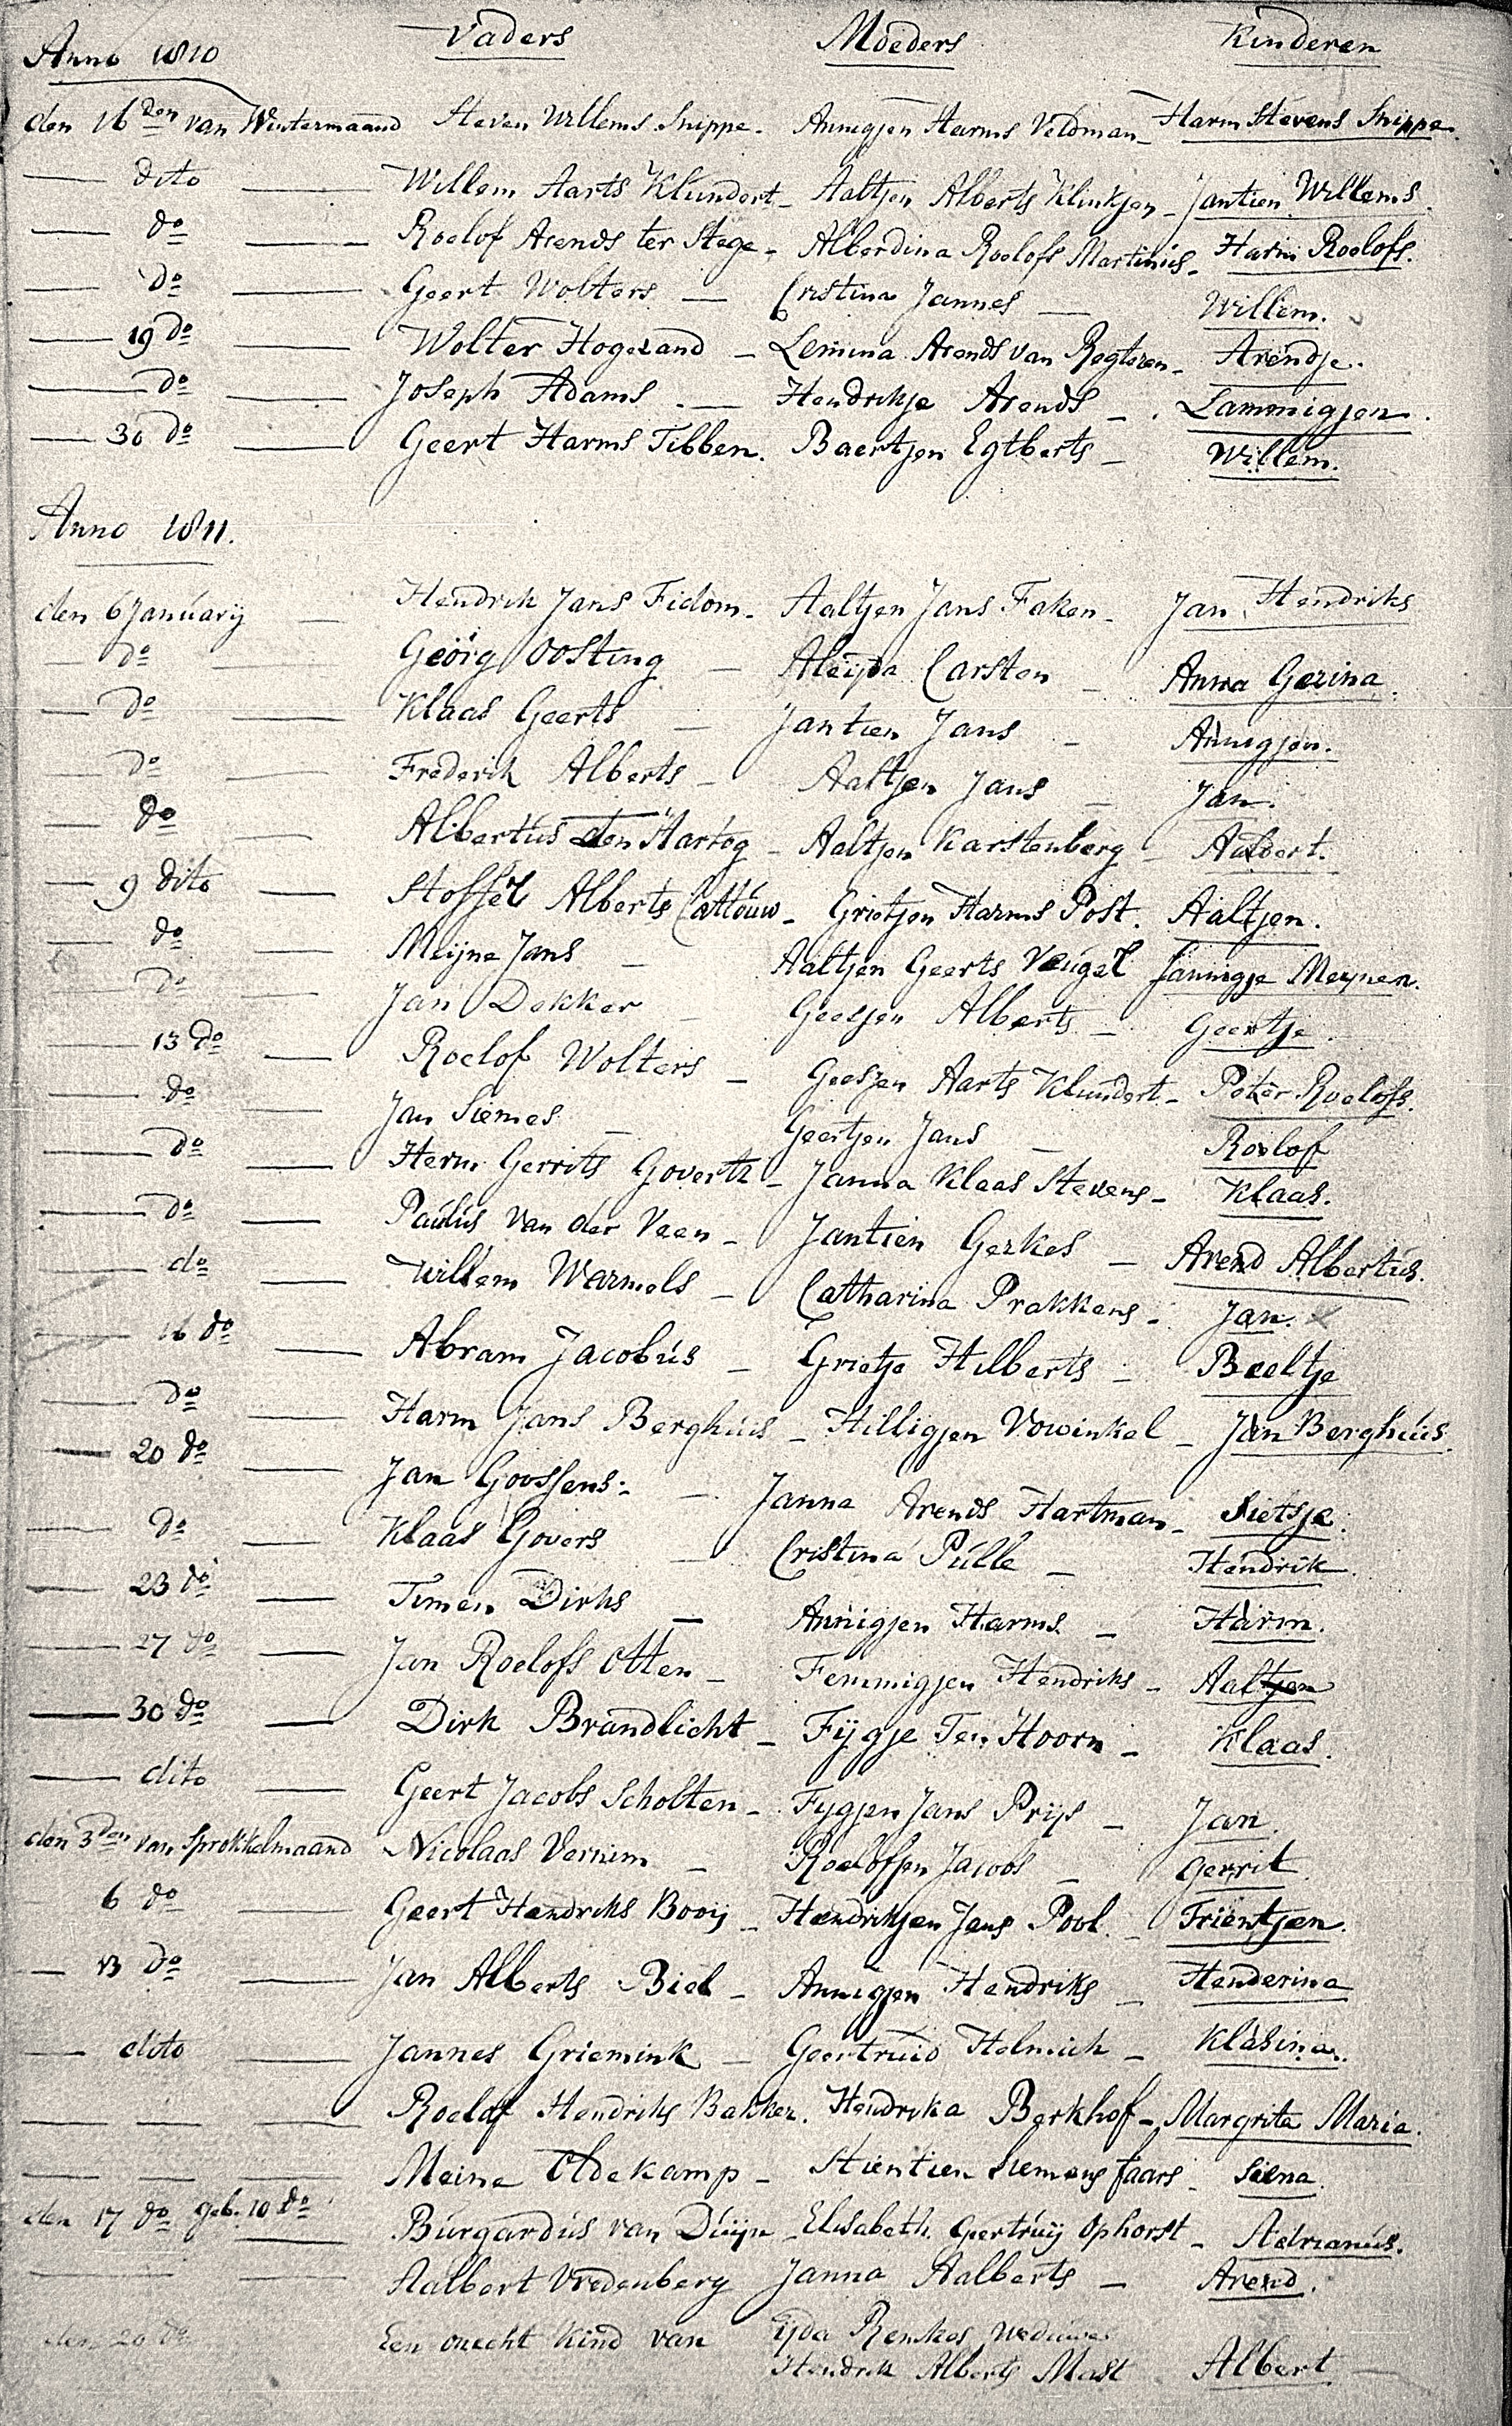 Anno 1810 Vaders Moeders Kinderen
den 16den van Wintermaand Steven Willems Snippe. Annigjen Harms Veldman Harm Stevens Snippe.
dito Willem Aarts Klundert Aaltjen Alberts Klinkjen Jantien Willems.
do Roelof Arends ter Stege Alberdina Roelofs Martinus Harm Roelofs.
do Geert Wolters Cristina Jannes Willem.
19 do Wolter Hogezand Lemina Arends van Regteren Arendje.
do Joseph Adams Hendrikje Arends Lammigjen.
30 do Geert Harms Tibben. Baertjen Egtberts Willem.
Anno 1811.
den 6 Januarij Hendrik Jans Fidom Aaltjen Jans Faken Jan Hendriks
do Geörg Oosting Aleijda Carsten Anna Gezina.
do Klaas Geerts Jantien Jans Annigjen.
do Frederik Alberts Aaltjen Jans Jan.
do Albertus den Hartog Aaltjen Karstenberg Aalbert.
9 dito Stoffel Alberts Cattouw Grietjen Harms Post. Aaltjen.
do Meijne Jans Aaltjen Geerts Veugel Jannigje Meynen.
do Jan Dekker Geesjen Alberts Geertje
13 do Roelof Wolters Geesjen Aarts Klundert Peter Roelofs.
do Jan Siemes Geertjen Jans Roelof
do Herm Gerrits Govertz Janna Klaas Stevens Klaas.
do Paulus van der Veen Jantien Gerkes Arend Albertus.
do Willem Warmels Catharina Prakkens Jan.
16 do Abram Jacobus Grietje Hilberts Beeltje
do Harm Jans Berghuis Hilligjen Vowinkel Jan Berghuis.
20 do Jan Goossens Janna Arends Hartman Sietsje.
do Klaas Govers Cristina Pulle Hendrik.
23 do Timen Dirks Annigjen Harms Harm.
27 do Jan Roelofs Otten Femmigjen Hendriks Aaltjen
30 do Dirk Brandlicht Fijgje Ten Hoorn Klaas.
dito Geert Jacobs Scholten Fygjen Jans Prijs Jan.
den 3den van Sprokkelmaand Nicolaas Vernim Roelofjen Jacobs Gerrit
6 do Geert Hendriks Booij Hendrikjen Jans Pool. Trientjen.
13 do Jan Alberts Biel Annigjen Hendriks Henderina
dito Jannes Griemink Geertruid Helmich Klasina.
Roelof Hendriks Bakker. Hendrika Berkhof Margrita Maria.
Meine Oldekamp Stientien Siemens faars Siena
den 17 do geb. 10 do Burgardus van Duijn Elisabeth Geertruij Ophorst Adrianus.
Aalbert Vredenberg Janna Aalberts Arend.
den 20 do Een onecht Kind van Ijda Renkes Weduwe
Hendrik Alberts Mast Albert